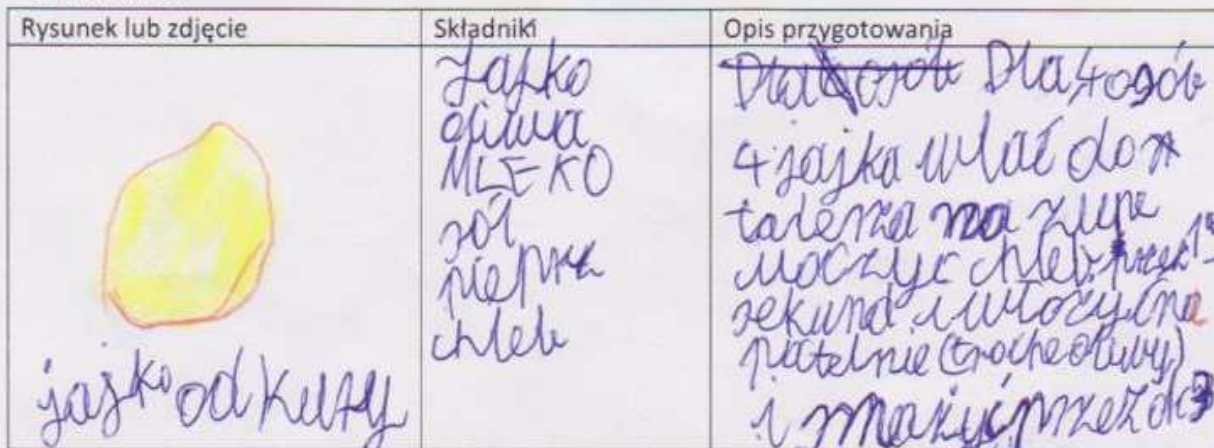 Rysunek lub zdjęcie
Składniki
Opis przygotowania
jajko od kury
Jajko
oliwa
MLEKO
sól
pieprz
chleb
Dla 4 osób
4 jajka wlać do
talerza na zupe
moczyć chleb przez
sekund i włożyć na
patelnie (troche oliwy)
i smażyć przez do